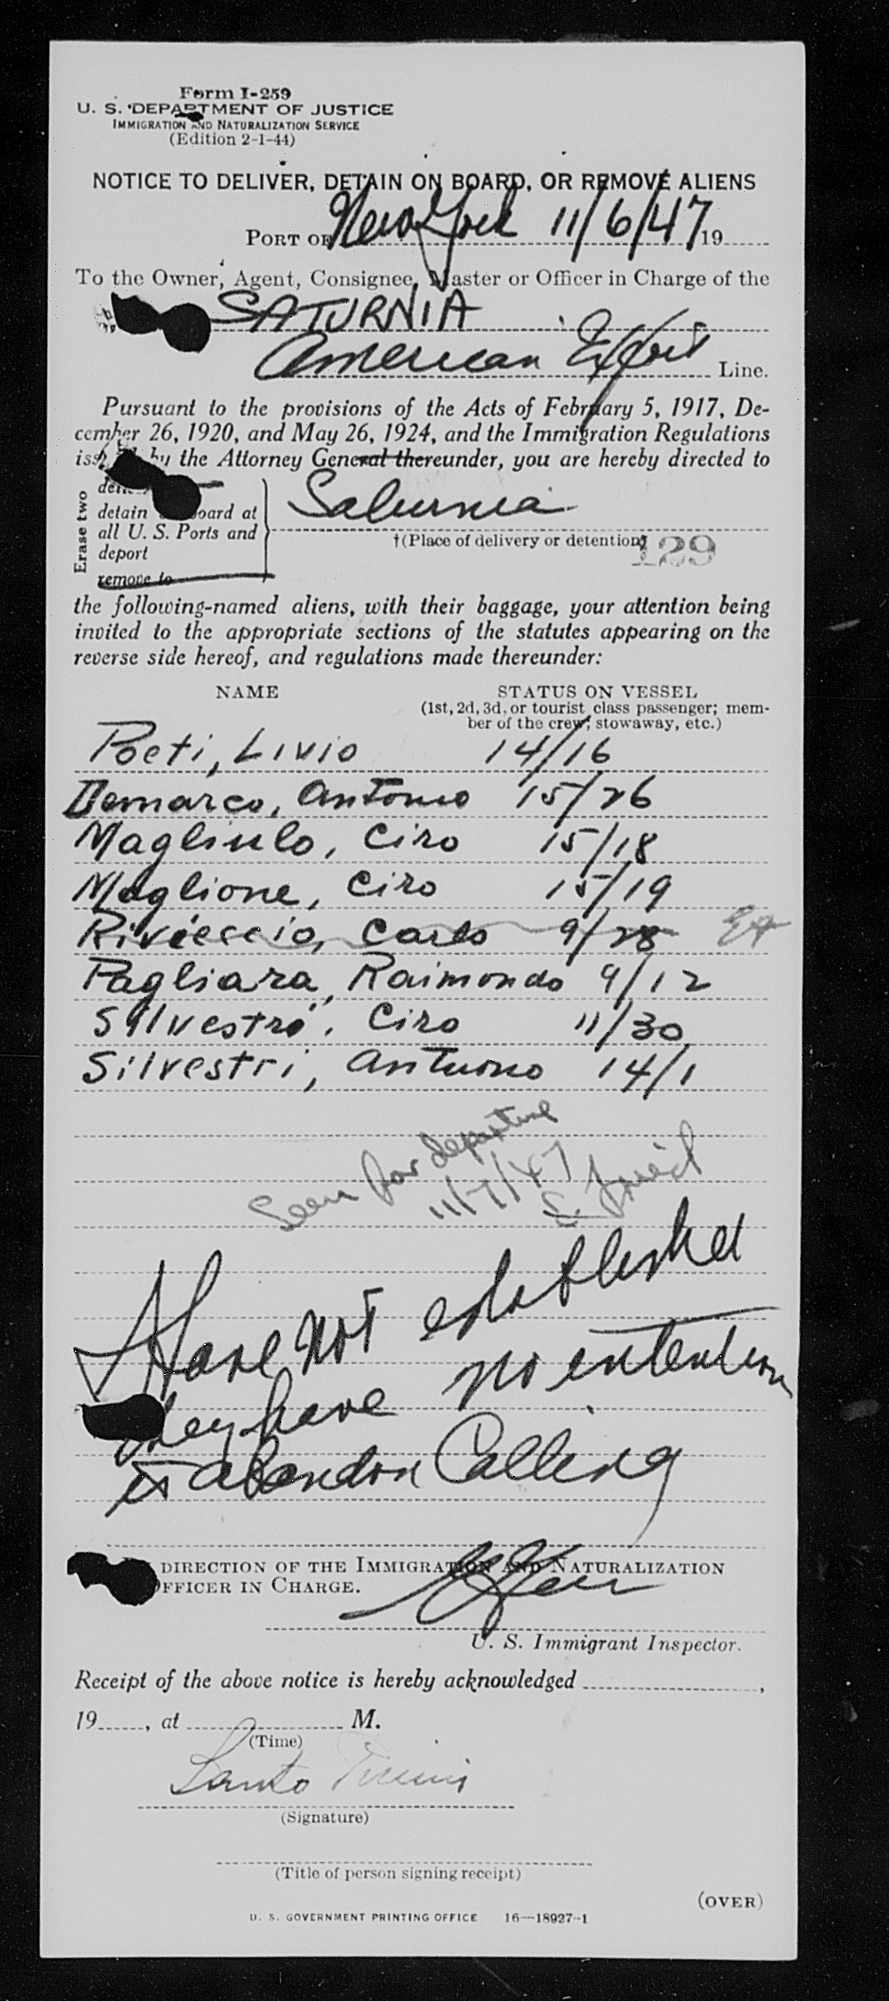 Form I-259
U. S. DEPARTMENT OF JUSTICE
IMMIGRATION AND NATURALIZATION SERVICE
(Edition 2-1-44)
NOTICE TO DELIVER, DETAIN ON BOARD, OR REMOVE ALIENS
PORT OF New York 11/6/47 19
To the Owner, Agent, Consignee, Master or Officer in Charge of the
SATURNIA
American Export Line.
Pursuant to the provisions of the Acts of February 5, 1917, De-
cember 26, 1920, and May 26, 1924, and the Immigration Regulations
by the Attorney General thereunder, you are hereby directed to
Erase two
detain board at
all U. S. Ports and
deport
remove to
Saturnia
†(Place of delivery or detention)
129
the following-named aliens, with their baggage, your attention being
invited to the appropriate sections of the statutes appearing on the
reverse side hereof, and regulations made thereunder:
NAME STATUS ON VESSEL
(1st, 2d, 3d, or tourist class passenger; mem-
ber of the crew, stowaway, etc.)
Poeti, Livio 14/16
Demarco, Antonio 15/26
Magliulo, Ciro 15/18
Maglione, Ciro 15/19
Rivieccio, Carlo 9/28
Pagliara, Raimondo 9/12
Silvestri, Ciro 11/30
Silvestri, Antuono 14/1
Seen for departure
11/7/47
Have not established
they have no intention
to abandon Calling
DIRECTION OF THE IMMIGRATION AND NATURALIZATION
OFFICER IN CHARGE.
U. S. Immigrant Inspector.
Receipt of the above notice is hereby acknowledged ,
19 , at M.
(Time)
Santo
(Signature)
(Title of person signing receipt)
(OVER)
U. S. GOVERNMENT PRINTING OFFICE 16—18927-1